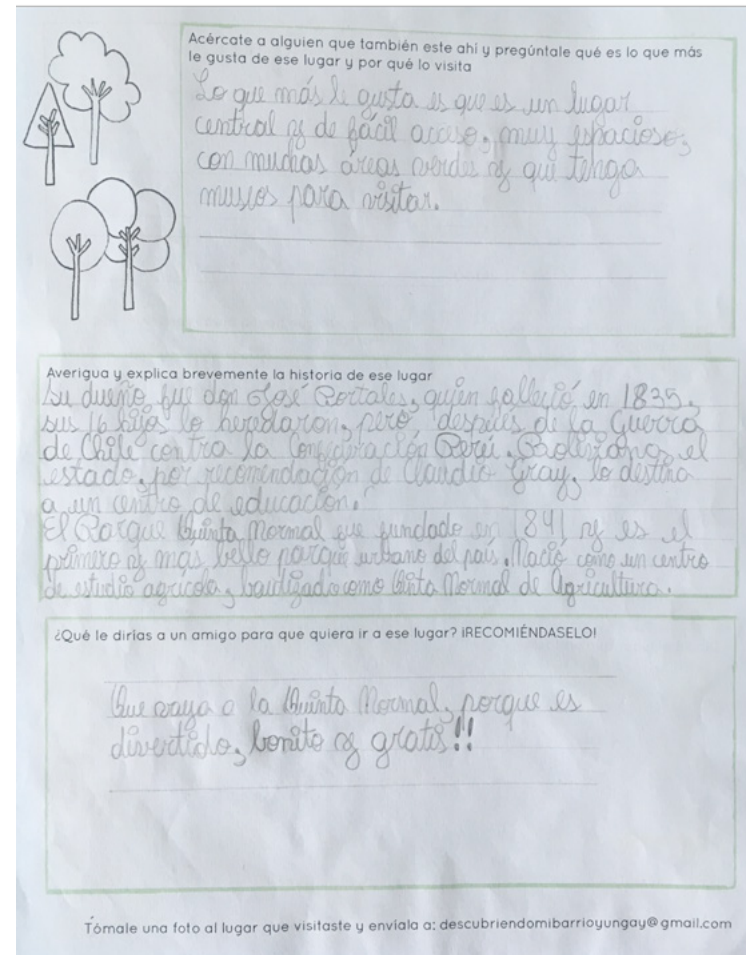 Acércate a alguien que también este ahí y pregúntale qué es lo que más
le gusta de ese lugar y por qué lo visita
Lo que más le gusta es que es un lugar
central y de fácil acceso, muy espacioso,
con muchas áreas verdes y que tenga
museos para visitar.
Averigua y explica brevemente la historia de ese lugar
Su dueño fue don José Portales, quien falleció en 1835.
Sus 16 hijos lo heredaron, pero después de la Guerra
de Chile contra la Confederación Perú-Boliviana, el
estado, por recomendación de Claudio Gray, lo destina
a un centro de educación.
El Parque Quinta Normal fue fundado en 1841 y es el
primero y mas bello parque urbano del país. Nació como un centro
de estudio agrícola, bautizado como Quinta Normal de Agricultura.
¿Qué le dirías a un amigo para que quiera ir a ese lugar? ¡RECOMIÉNDASELO!
Que vaya a la Quinta Normal, porque es
divertido, bonito y gratis!!
Tómale una foto al lugar que visitaste y envíala a: descubriendomibarrioyungay@gmail.com